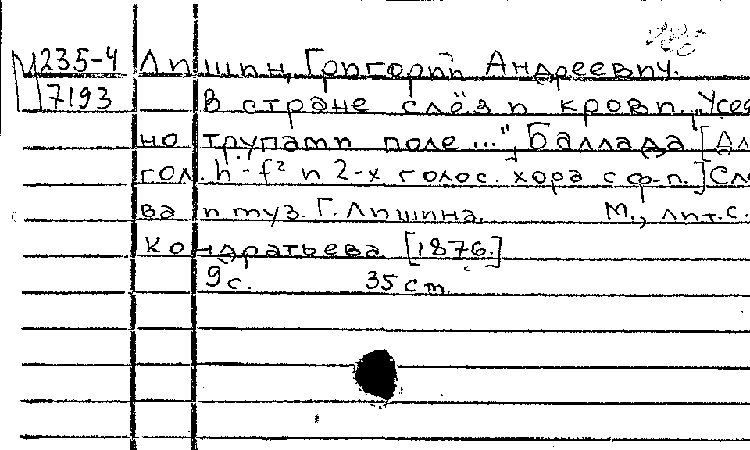 М235-4 Лишин, Григорий Андреевич.
7193 В стране слёз и крови. „Усея
но трупами поле...", Баллада. [Дл
гол. h-f² и 2-х голос. хора с ф-п.] Сл
ва и муз. Г. Лишина. М., лит. С.
Кондратьева [1876.]
9 с. 35 см